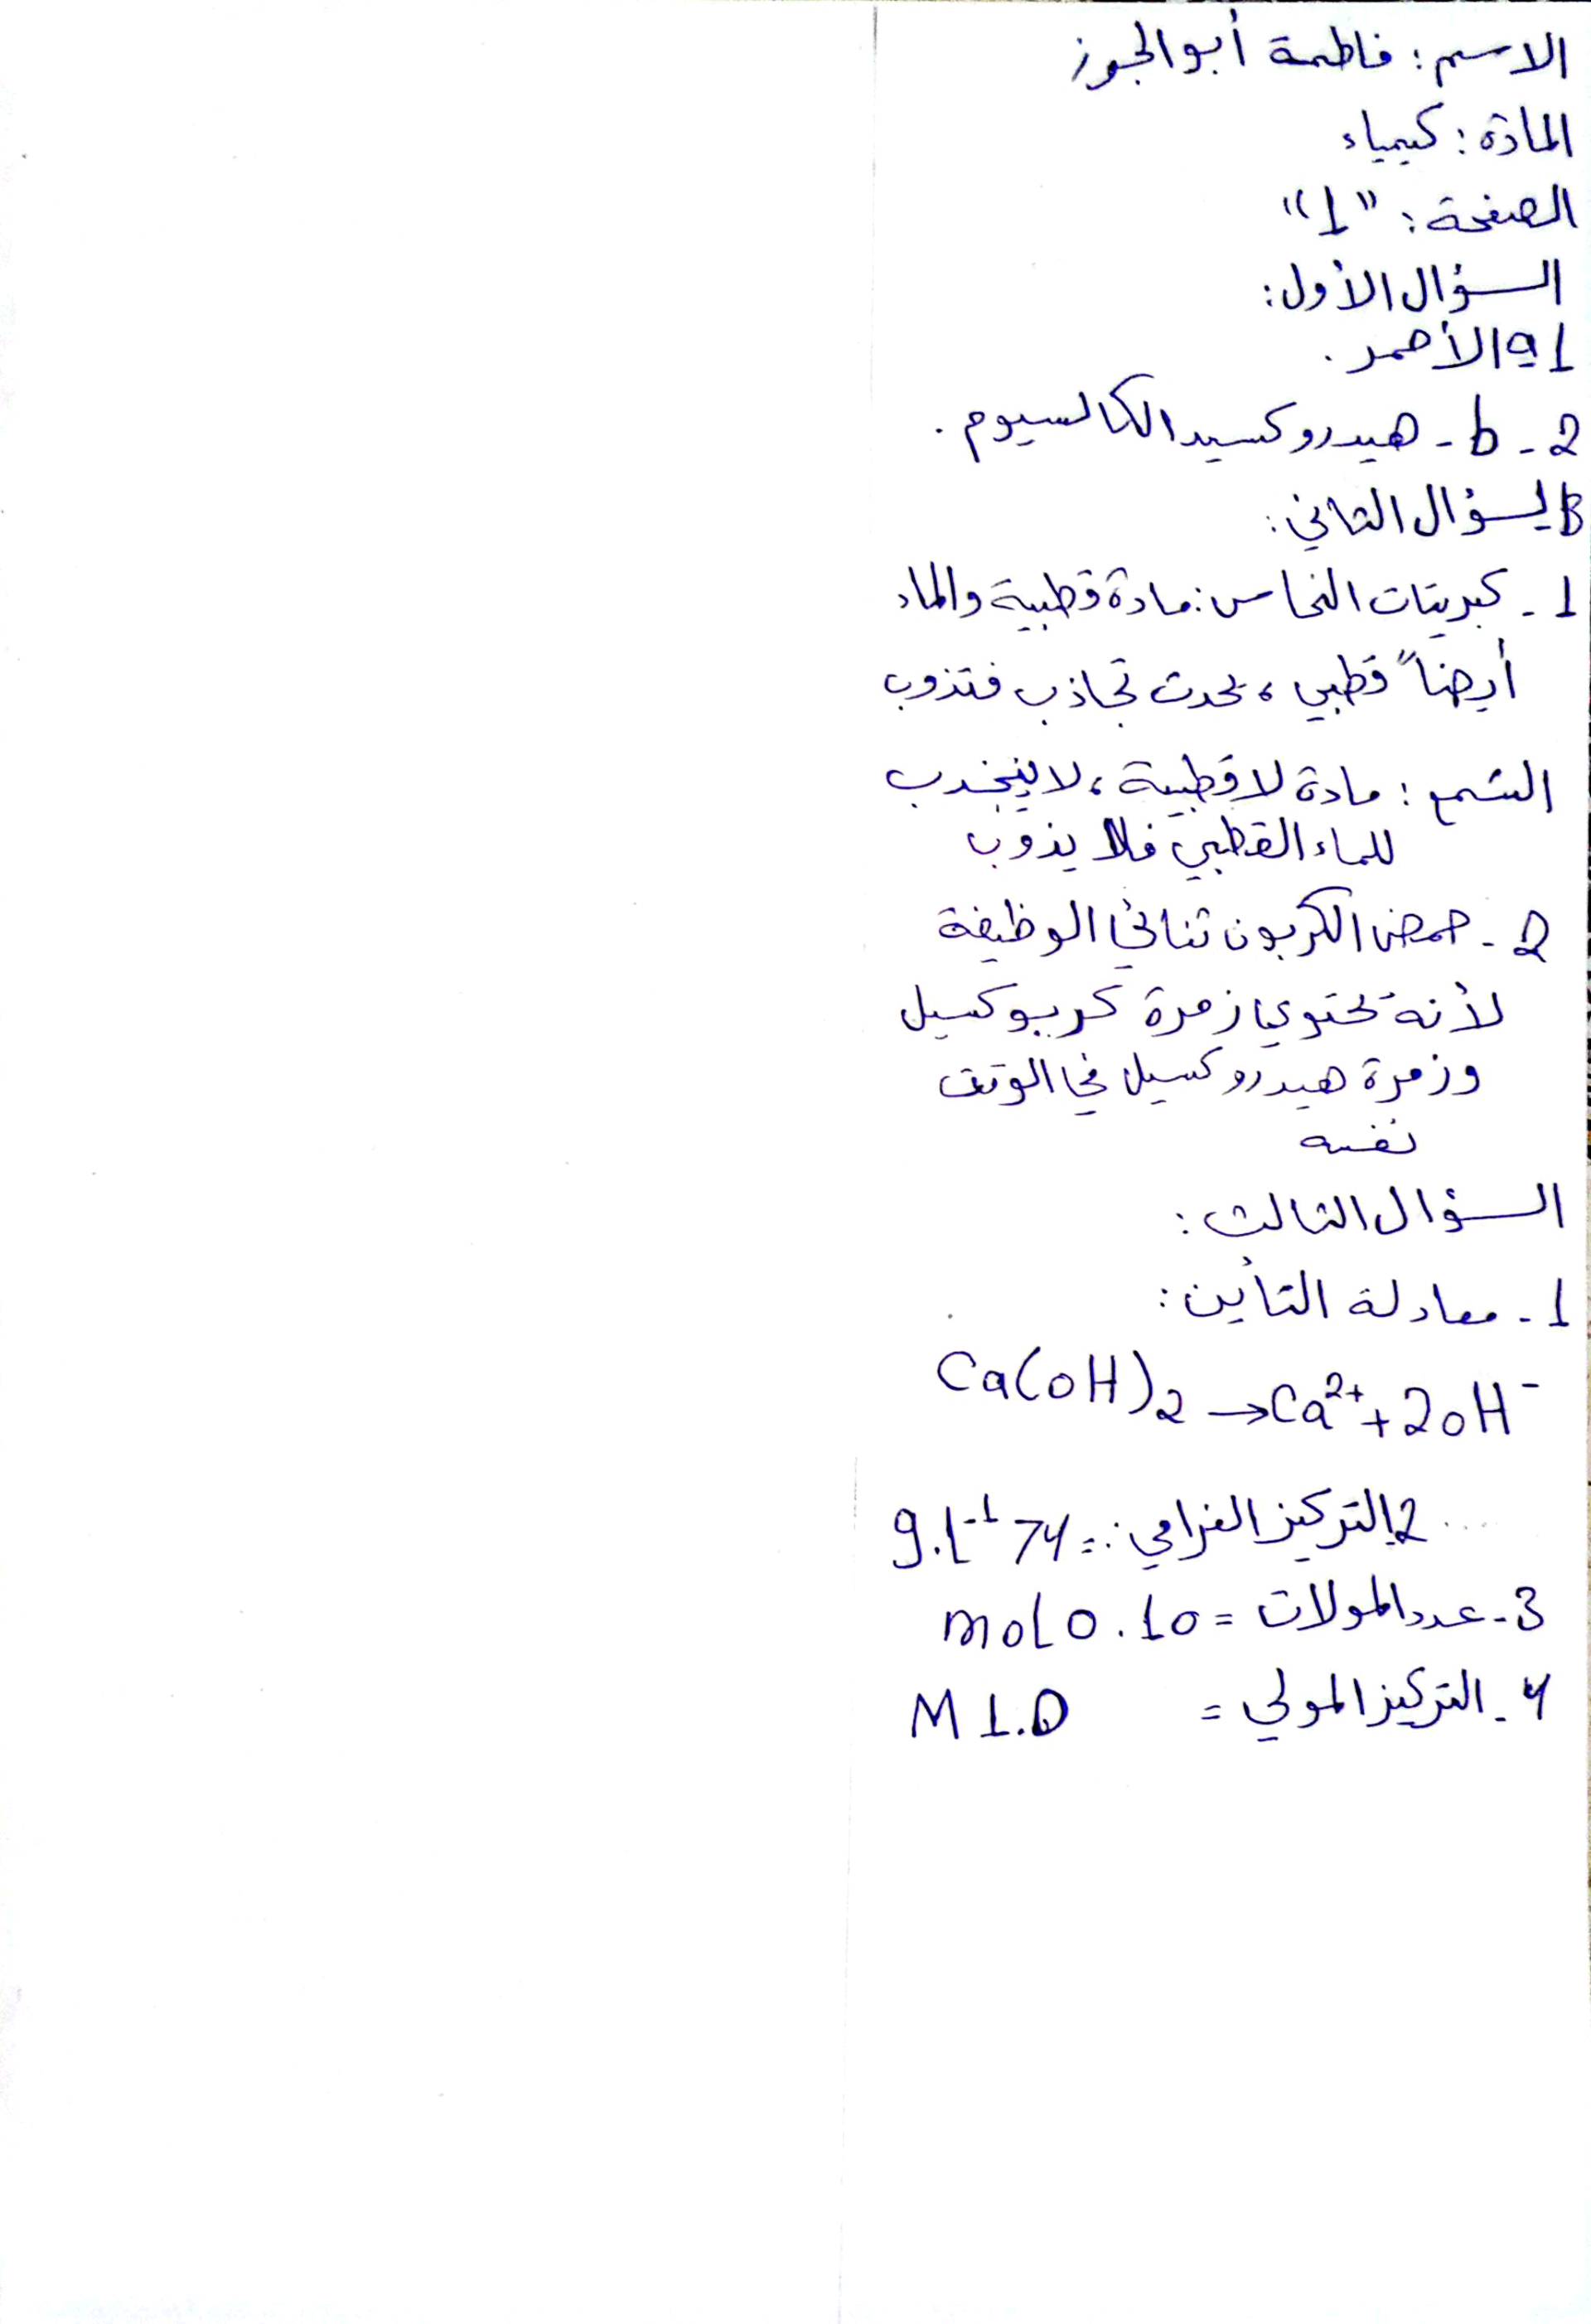 الاسم: فاطمة أبو الجوز
المادة: كيمياء
الصفحة: "1"
السؤال الأول:
1 a الأحمر.
2 - b - هيدروكسيد الكالسيوم.
السؤال الثاني:
1 - كبريتات النحاس: مادة قطبية والماء
أيضاً قطبي، يحدث تجاذب فتذوب
الشمع: مادة لا قطبية، لا ينجذب
للماء القطبي فلا يذوب
2 - حمض الكربون ثنائي الوظيفة
لأنه يحتوي زمرة كربوكسيل
وزمرة هيدروكسيل في الوقت
نفسه
السؤال الثالث:
1 - معادلة التأين:
Ca(OH)₂ → Ca²⁺ + 2OH⁻
2 التركيز الغرامي: = 74 g.L⁻¹
3 - عدد المولات = 0.10 mol
4 - التركيز المولي = 1.0 M